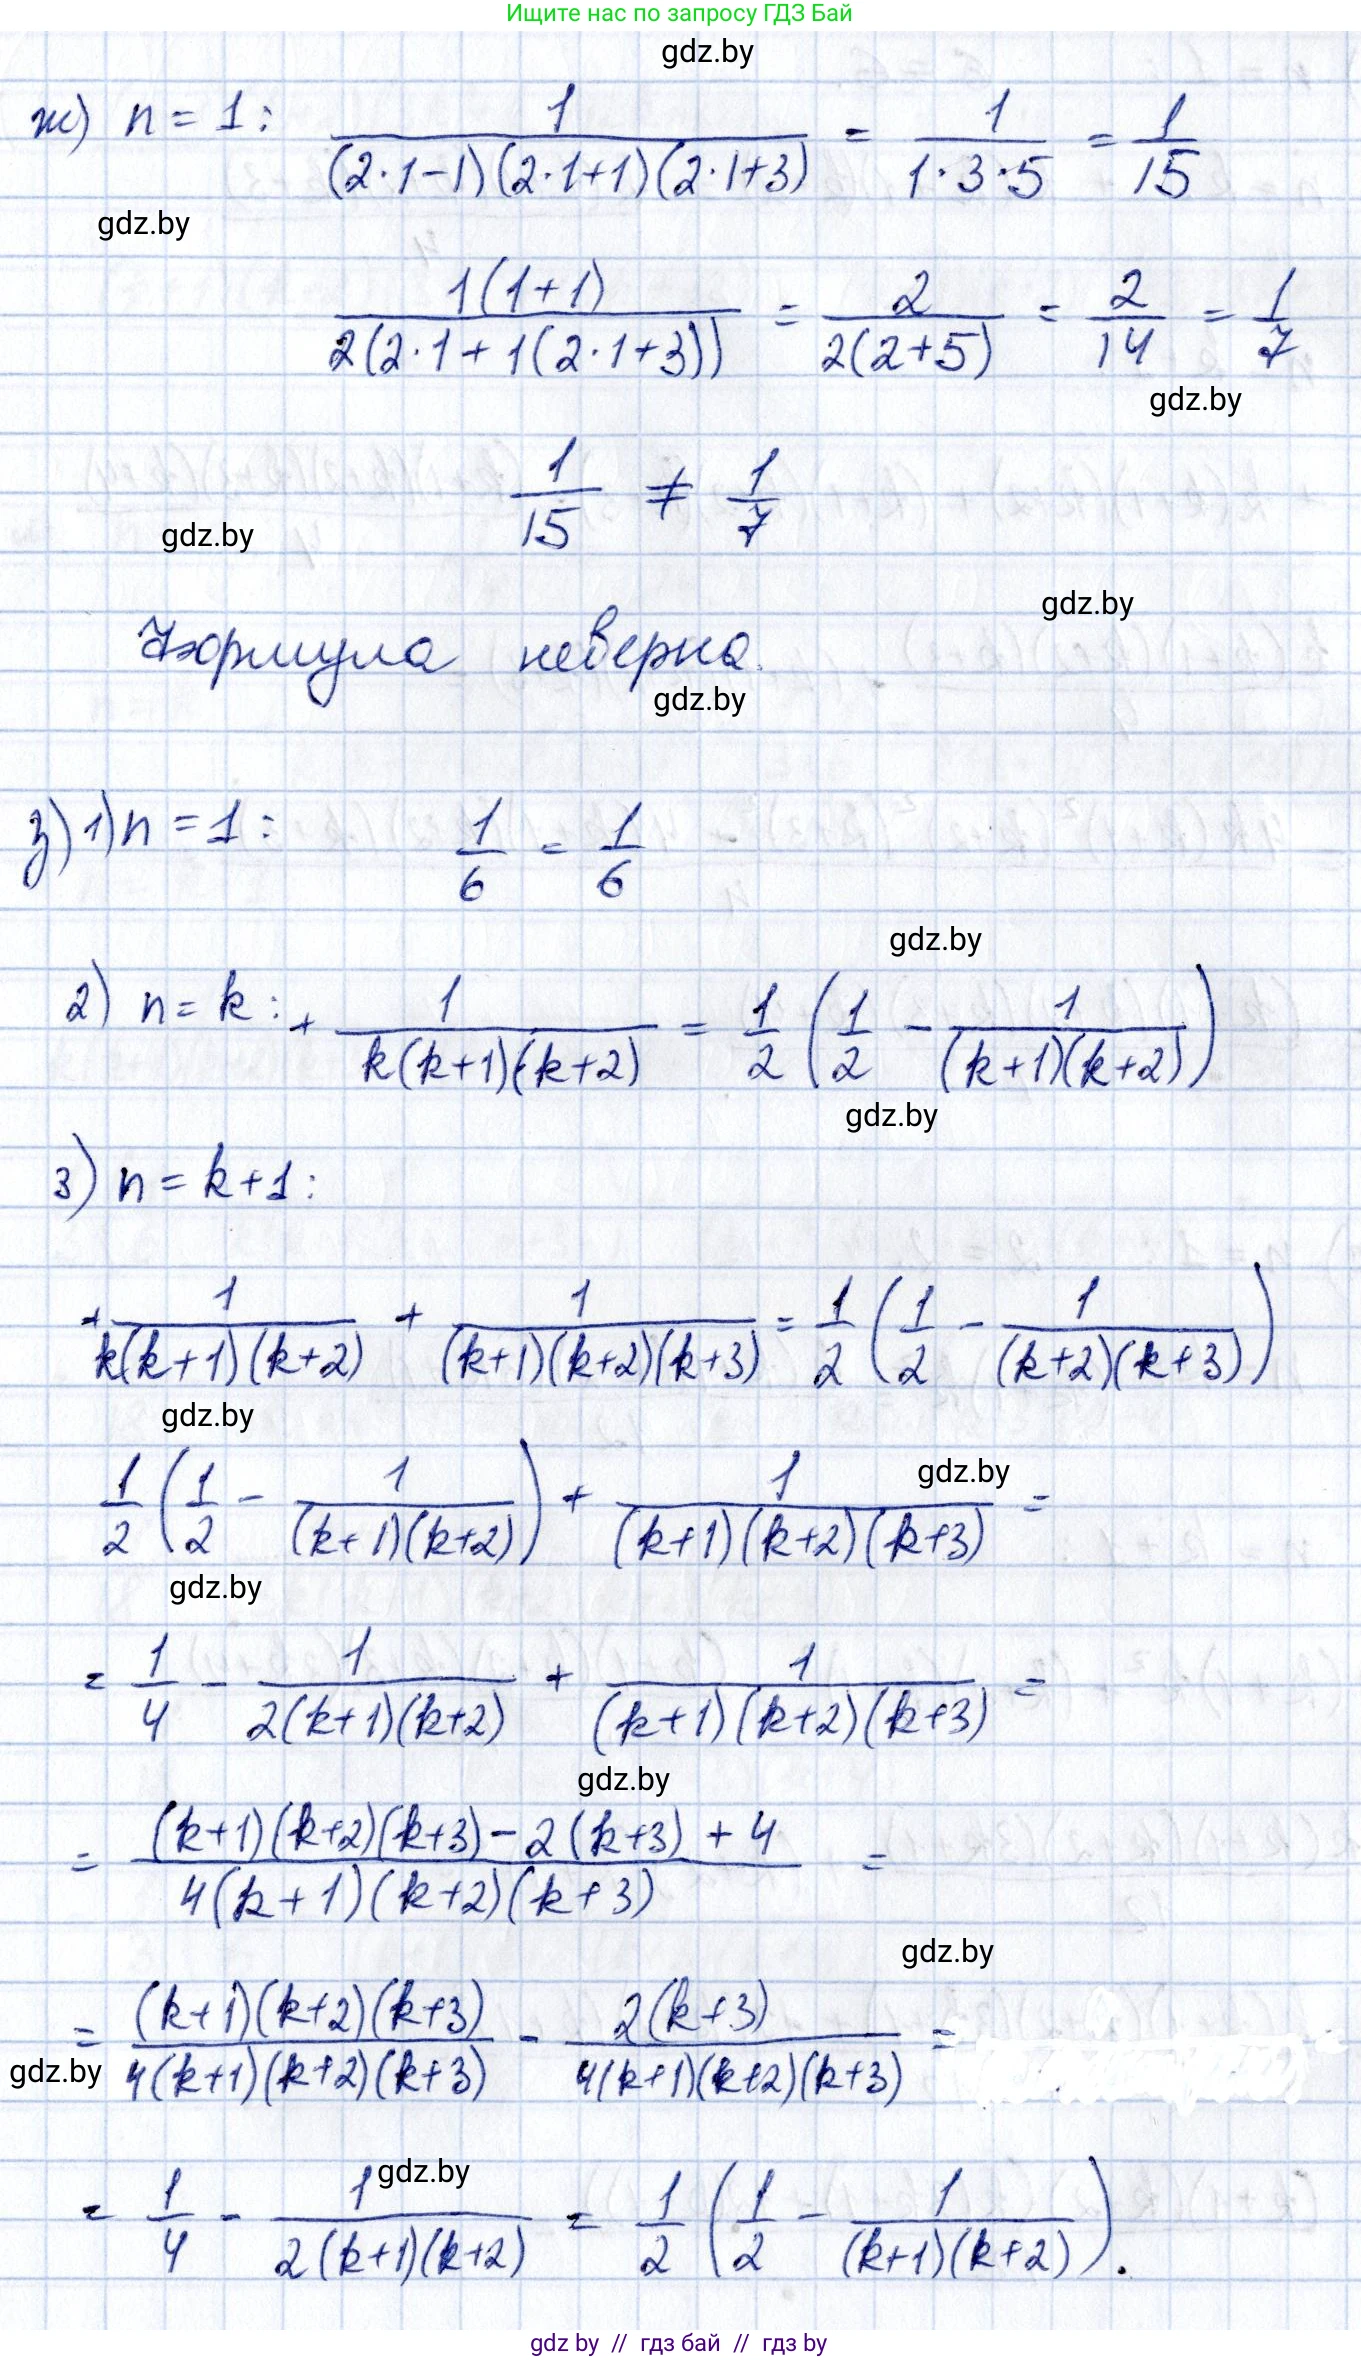 Ищите нас по запросу ГДЗ Бай
gdz.by
ж) n = 1 : 1/((2·1−1)(2·1+1)(2·1+3)) = 1/(1·3·5) = 1/15
gdz.by
1(1+1)/(2(2·1+1(2·1+3))) = 2/(2(2+5)) = 2/14 = 1/7
gdz.by
1/15 ≠ 1/7
gdz.by
gdz.by
Формула неверна.
gdz.by
з) 1) n = 1 : 1/6 = 1/6
gdz.by
2) n = k : + 1/(k(k+1)(k+2)) = 1/2 (1/2 − 1/((k+1)(k+2)))
gdz.by
3) n = k+1 :
+ 1/(k(k+1)(k+2)) + 1/((k+1)(k+2)(k+3)) = 1/2 (1/2 − 1/((k+2)(k+3)))
gdz.by
gdz.by
1/2 (1/2 − 1/((k+1)(k+2))) + 1/((k+1)(k+2)(k+3)) =
gdz.by
= 1/4 − 1/(2(k+1)(k+2)) + 1/((k+1)(k+2)(k+3)) =
gdz.by
= ((k+1)(k+2)(k+3) − 2(k+3) + 4)/(4(k+1)(k+2)(k+3)) =
gdz.by
= (k+1)(k+2)(k+3)/(4(k+1)(k+2)(k+3)) − 2(k+3)/(4(k+1)(k+2)(k+3)) =
gdz.by
gdz.by
= 1/4 − 1/(2(k+1)(k+2)) = 1/2 (1/2 − 1/((k+1)(k+2))).
gdz by // гдз бай // гдз by